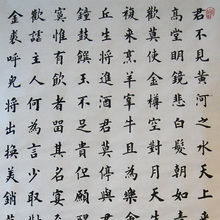 君不見黃河之水天上
高堂明鏡悲白髮朝如
歡莫使金樽空對月天
復來烹羊宰牛且為樂
丘生將進酒君莫停與
鐘鼓饌玉不足貴但願
寞惟有飲者留其名
歡謔主人何為言少
金裘呼兒將出換美